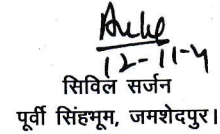 12-11-4
सिविल सर्जन
पूर्वी सिंहभूम, जमशेदपुर।